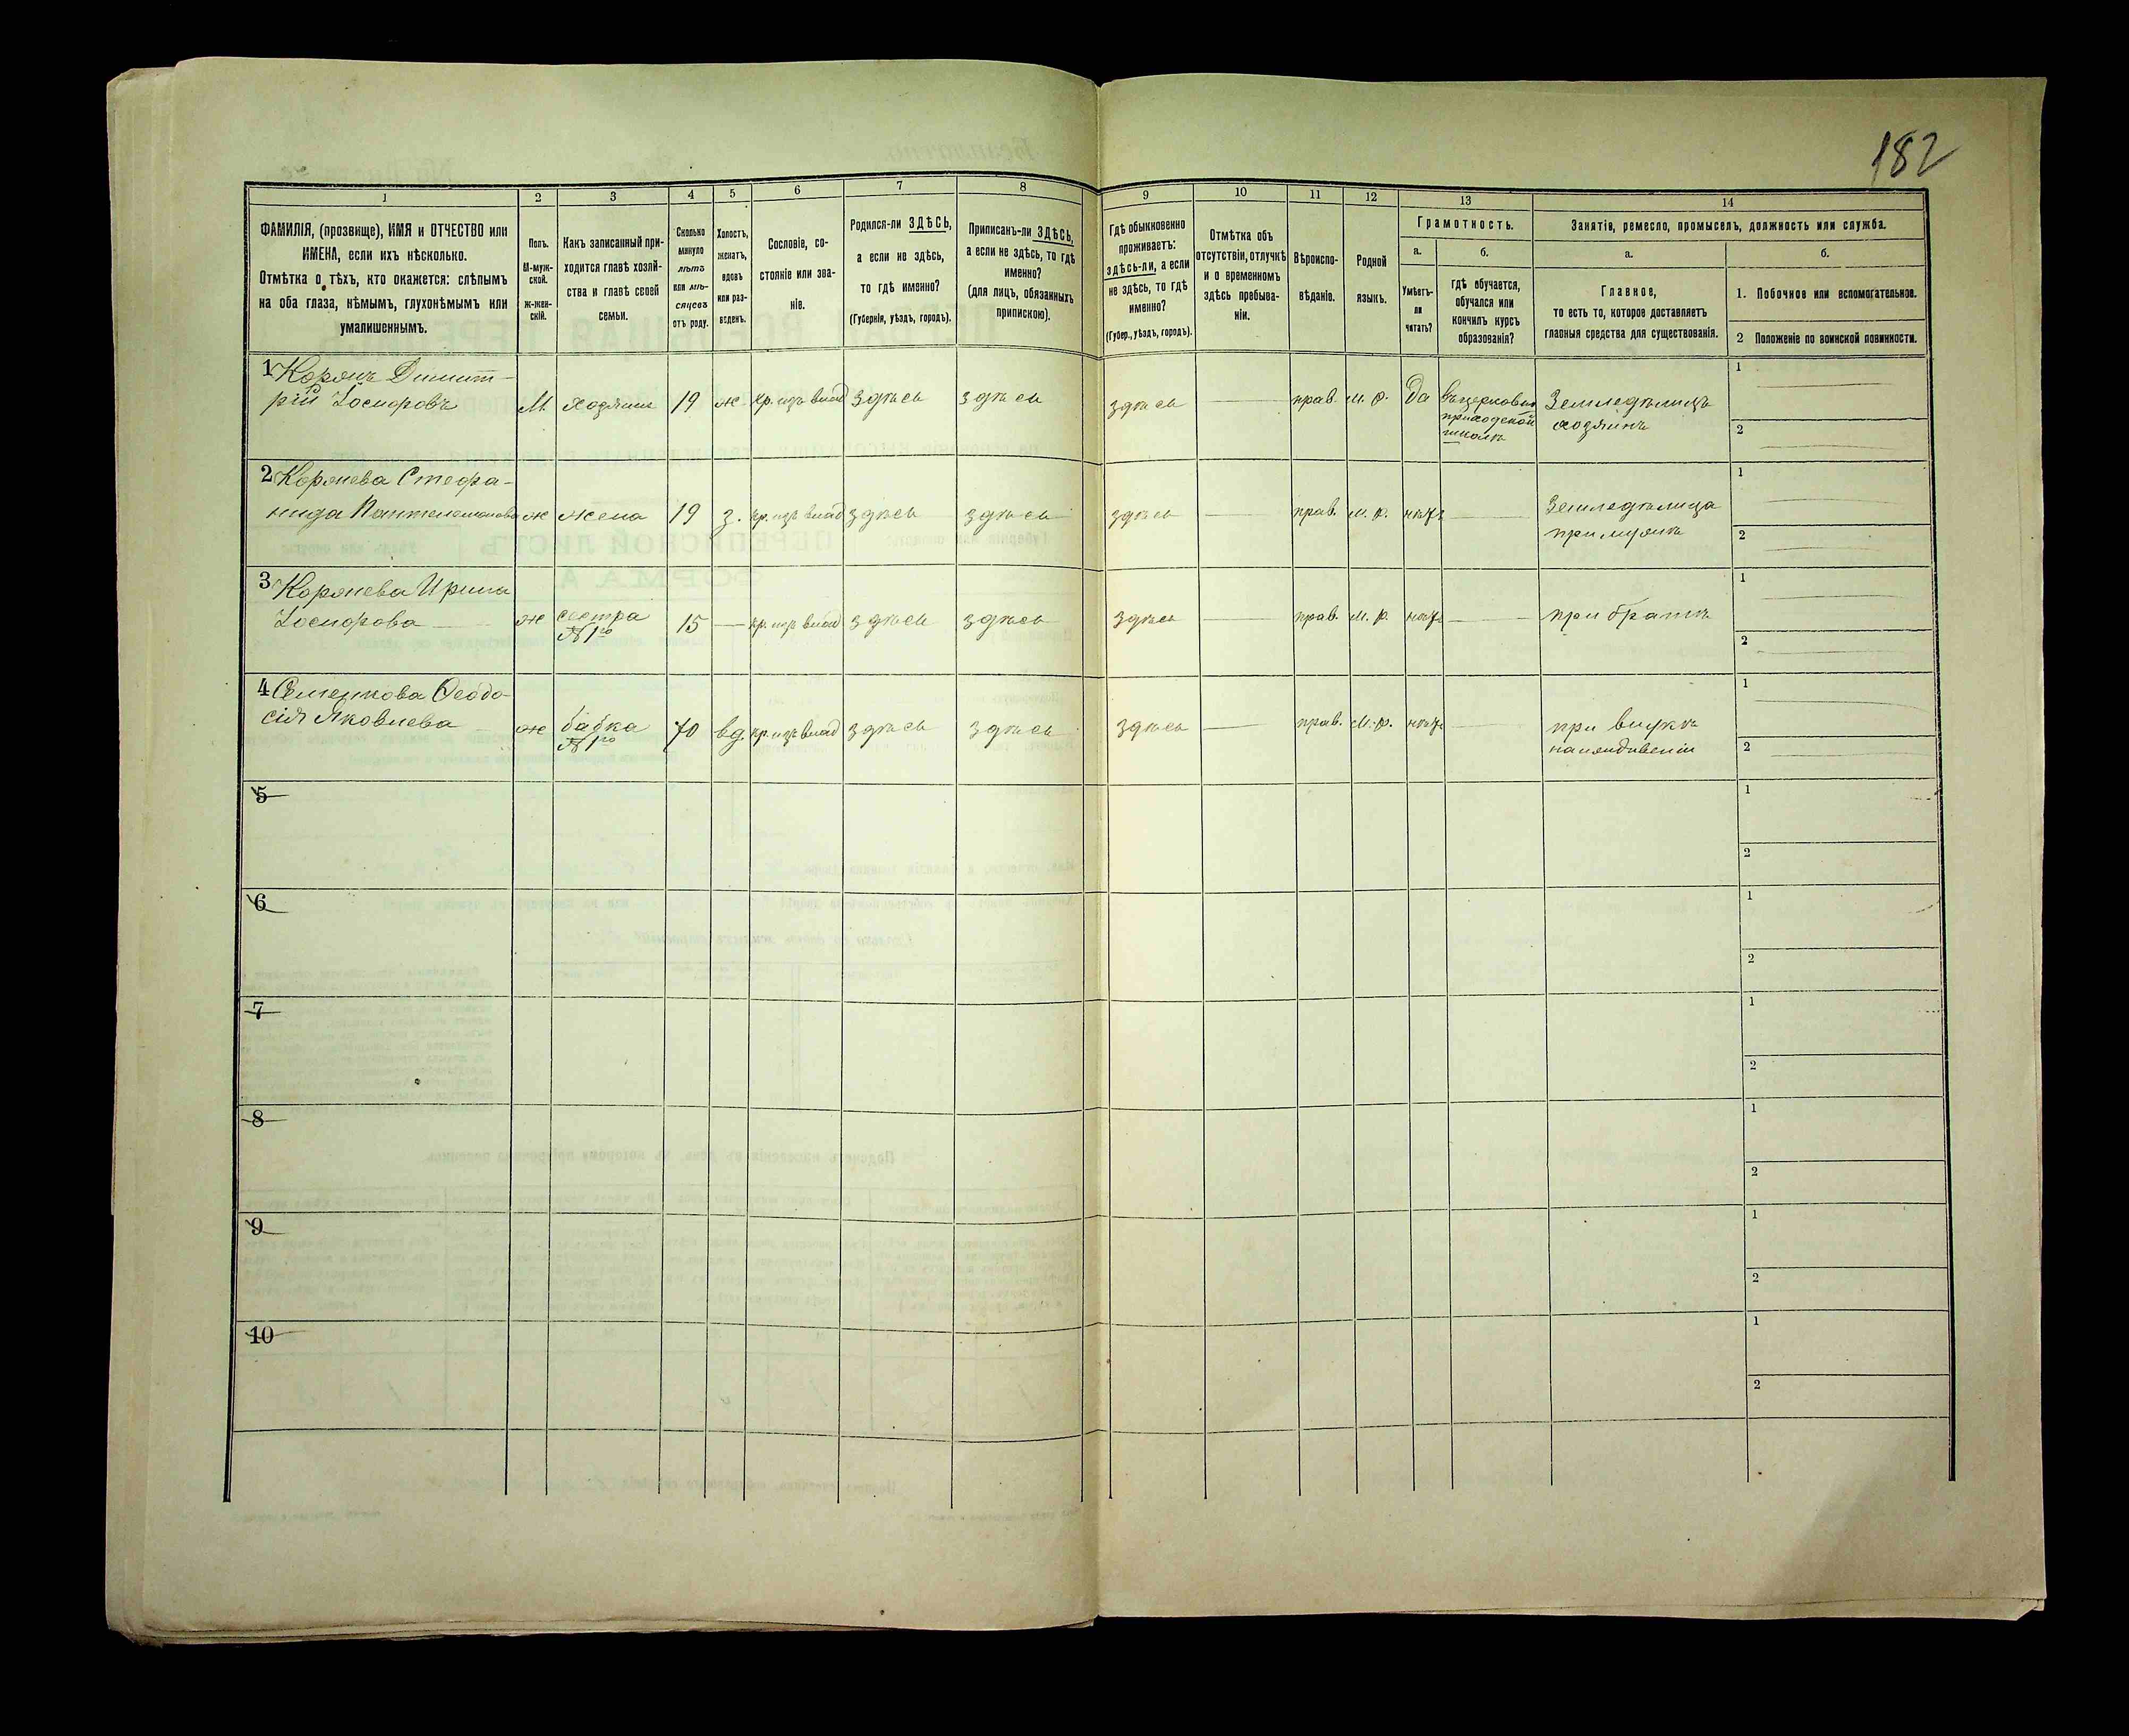 182
1
2
3
4
5
6
7
8
9
10
11
12
13
14
ФАМИЛІЯ, (прозвище), ИМЯ и ОТЧЕСТВО или
ИМЕНА, если ихъ нѣсколько.
Отмѣтка о тѣхъ, кто окажется: слѣпымъ
на оба глаза, нѣмымъ, глухонѣмымъ или
умалишеннымъ.
Полъ.
М-муж-
ской.
Ж-жен-
скій.
Какъ записанный при-
ходится главѣ хозяй-
ства и главѣ своей
семьи.
Сколько
минуло
лѣтъ
или мѣ-
сяцевъ
отъ роду.
Холостъ,
женатъ,
вдовъ
или раз-
веденъ.
Сословіе, со-
стояніе или зва-
ніе.
Родился-ли ЗДѢСЬ,
а если не здѣсь,
то гдѣ именно?
(Губернія, уѣздъ, городъ).
Приписанъ-ли ЗДѢСЬ,
а если не здѣсь, то гдѣ
именно?
(для лицъ, обязанныхъ
припискою).
Гдѣ обыкновенно
проживаетъ:
здѣсь-ли, а если
не здѣсь, то гдѣ
именно?
(Губер., уѣздъ, городъ).
Отмѣтка объ
отсутствіи, отлучкѣ
и о временномъ
здѣсь пребыва-
ніи.
Вѣроиспо-
вѣданіе.
Родной
языкъ.
Грамотность.
а.
Умѣетъ-
ли
читать?
б.
гдѣ обучается,
обучался или
кончилъ курсъ
образованія?
Занятіе, ремесло, промыселъ, должность или служба.
а.
Главное,
то есть то, которое доставляетъ
главныя средства для существованія.
б.
1. Побочное или вспомогательное.
2 Положеніе по воинской повинности.
1 Корянъ Димит-
рій
М. хозяинъ 19 ж. кр. изъ влад здѣсь здѣсь здѣсь прав. м. р. Да
въ церковно
приходской
школѣ
Земледѣлецъ
хозяинъ
1
2
2 Корянева Стефа-
нида Пантелеимонова
ж жена 19 з. кр. изъ влад здѣсь здѣсь здѣсь прав. м. р. нѣтъ
Земледѣлица
при мужѣ
1
2
3 Корянева Ирина
ж сестра
№ 1го
15 кр. изъ влад здѣсь здѣсь здѣсь прав. м. р. нѣтъ при братѣ
1
2
4 Семенкова Ѳеодо-
сія Яковлева
ж бабка
№ 1го
70 вд. кр. изъ влад здѣсь здѣсь здѣсь прав. м. р. нѣтъ
при внукѣ
на иждивеніи
1
2
5
1
2
6
1
2
7
1
2
8
1
2
9
1
2
10
1
2